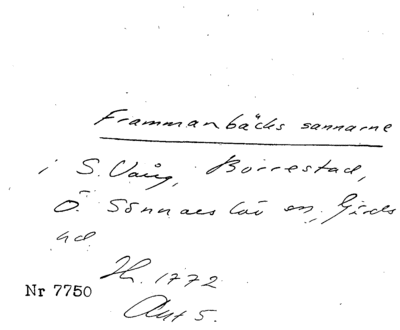 Frammanbäcks sannarne
i S. Vång, Borrestad,
Ö. Sönnarslöv sn, Gärds
hd
Nr 7750
1772
Akt 5.